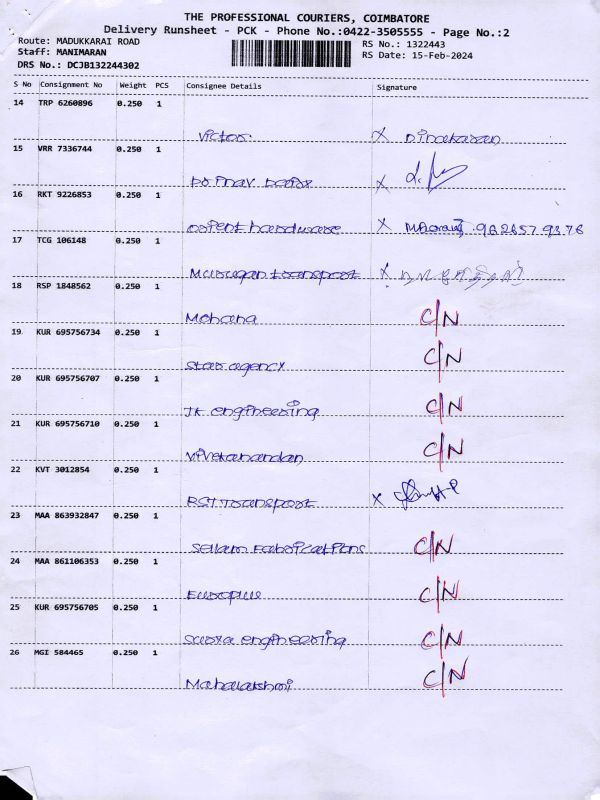 THE PROFESSIONAL COURIERS, COIMBATORE
Delivery Runsheet - PCK - Phone No.:0422-3505555 - Page No.:2
Route: MADUKKARAI ROAD
RS No.: 1322443
Staff: MANIMARAN
RS Date: 15-Feb-2024
DRS No.: DCJB132244302
S No Consignment No Weight PCS Consignee Details Signature
14 TRP 6260896 0.250 1
Victor X Dinakaran
15 VRR 7336744 0.250 1
X
16 RKT 9226853 0.250 1
hardware X
17 TCG 106148 0.250 1
Murugan transport X
18 RSP 1848562 0.250 1
Mohana C/N
19 KUR 695756734 0.250 1
Star agency C/N
20 KUR 695756707 0.250 1
JK engineering C/N
21 KUR 695756710 0.250 1
Vivekanandan C/N
22 KVT 3012854 0.250 1
Transport X
23 MAA 863932847 0.250 1
Sellam Fabrications C/N
24 MAA 861106353 0.250 1
Europlus C/N
25 KUR 695756705 0.250 1
Surya engineering C/N
26 MGI 584465 0.250 1
Mahalakshmi C/N